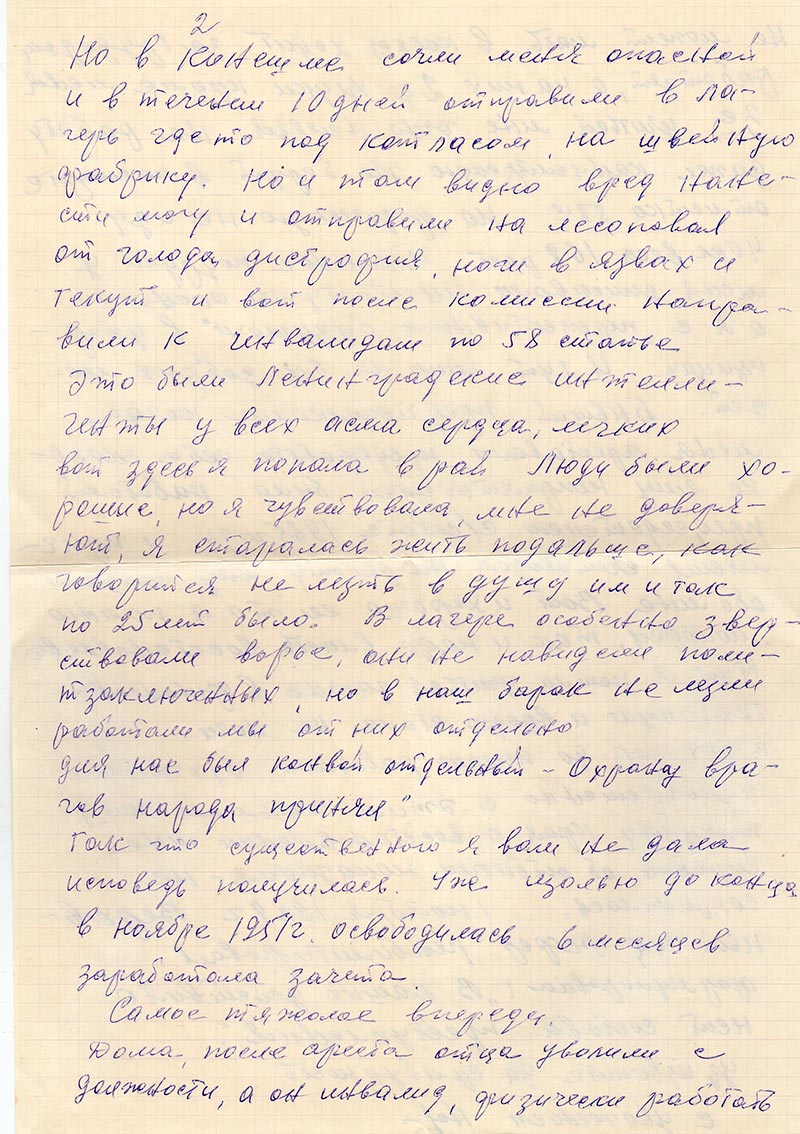 2
Но в Кинешме сочли меня опасной
и в течении 10 дней отправили в ла-
герь где то под Котласом, на швейную
фабрику. Но и там видно вред нане-
сти могу и отправили на лесоповал
от голода, дистрофия, ноги в язвах и
текут и вот после комиссии напра-
вили к инвалидам по 58 статье
Это были Ленинградские интелли-
генты у всех астма сердца, легких
вот здесь я попала в рай Люди были хо-
рошие, но я чувствовала, мне не доверя-
ют, я старалась жить подальше, как
говорится не лезть в душу им и так
по 25 лет было. В лагере особенно звер-
ствовали ворье, они не навидели поли-
тзаключенных, но в наш барак не лезли
работали мы от них отдельно
для нас был конвой отдельный – Охрану вра-
гов народа приняли"
Так что существенного я вам не дала
исповедь получилась. Уже изолью до конца
в ноябре 1951г. освободилась 6 месяцев
заработала зачета.
Самое тяжолое впереди.
Дома, после ареста отца уволили с
должности, а он инвалид, физически работать